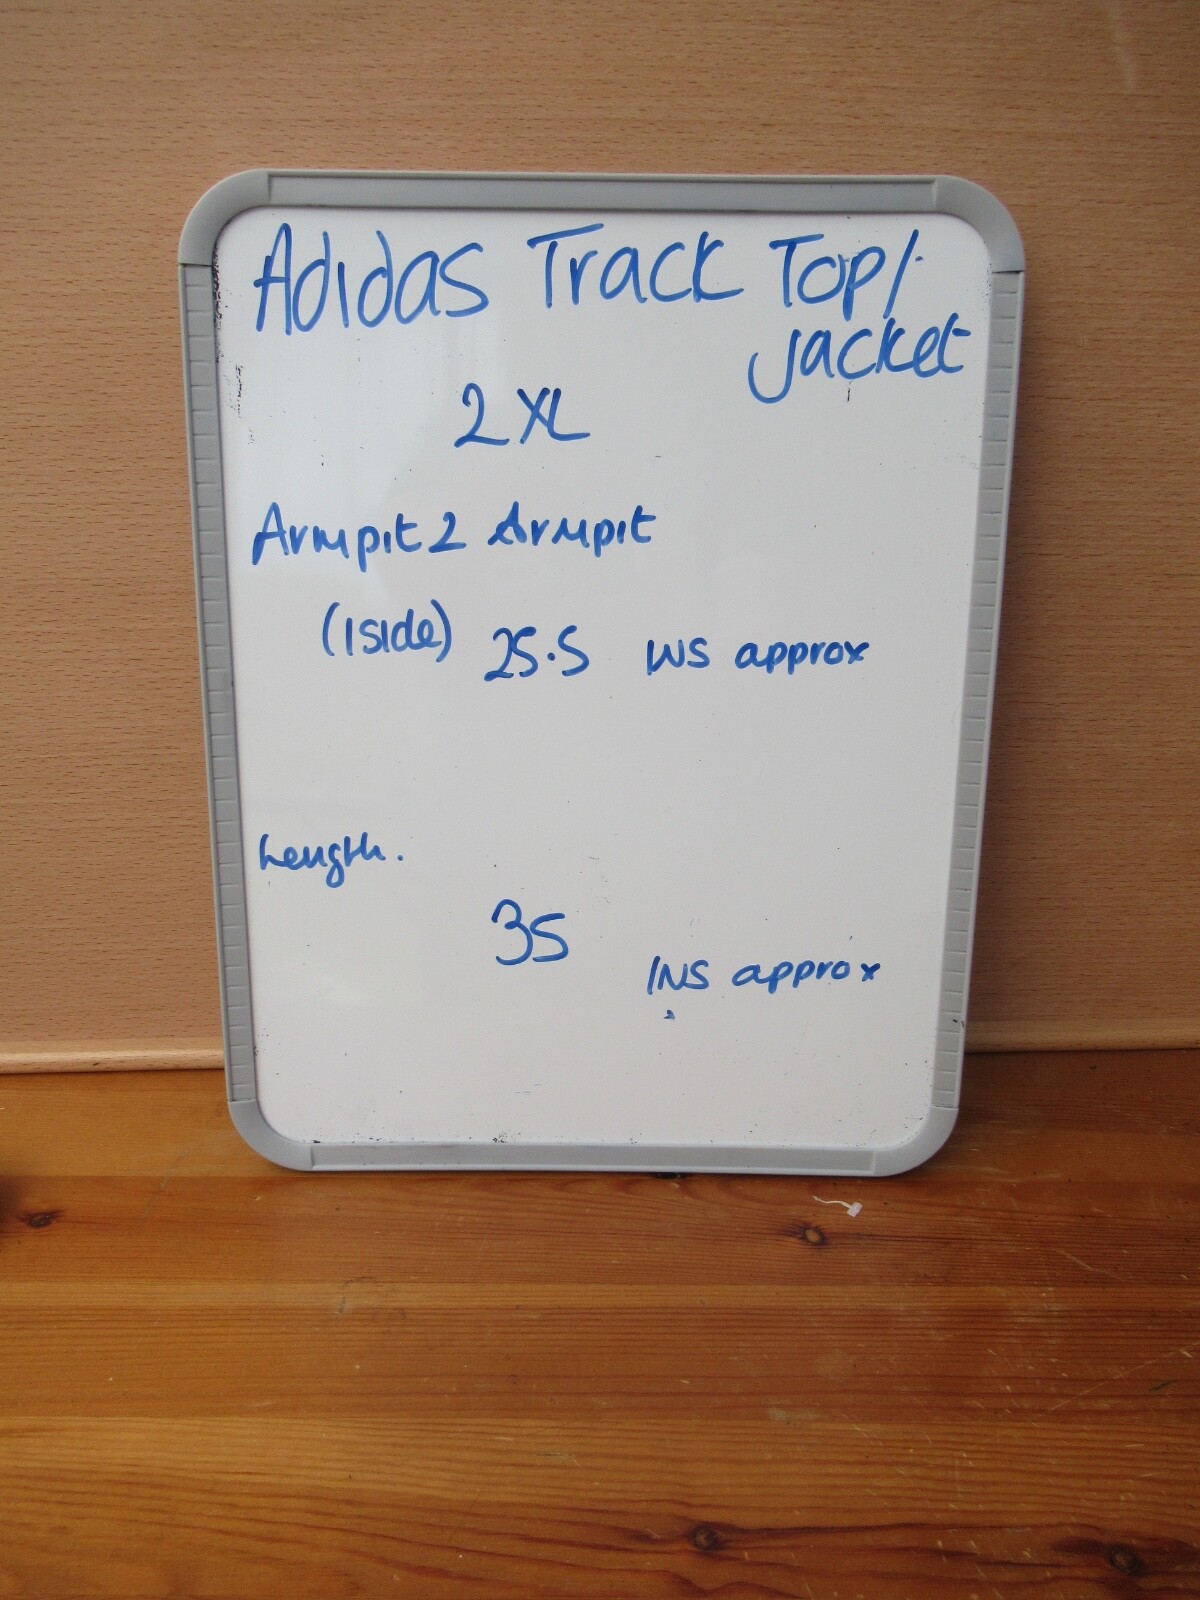 Adidas Track Top/
Jacket
2XL
Armpit 2 Armpit
(1side) 25.5 INS approx
Length.
35
INS approx